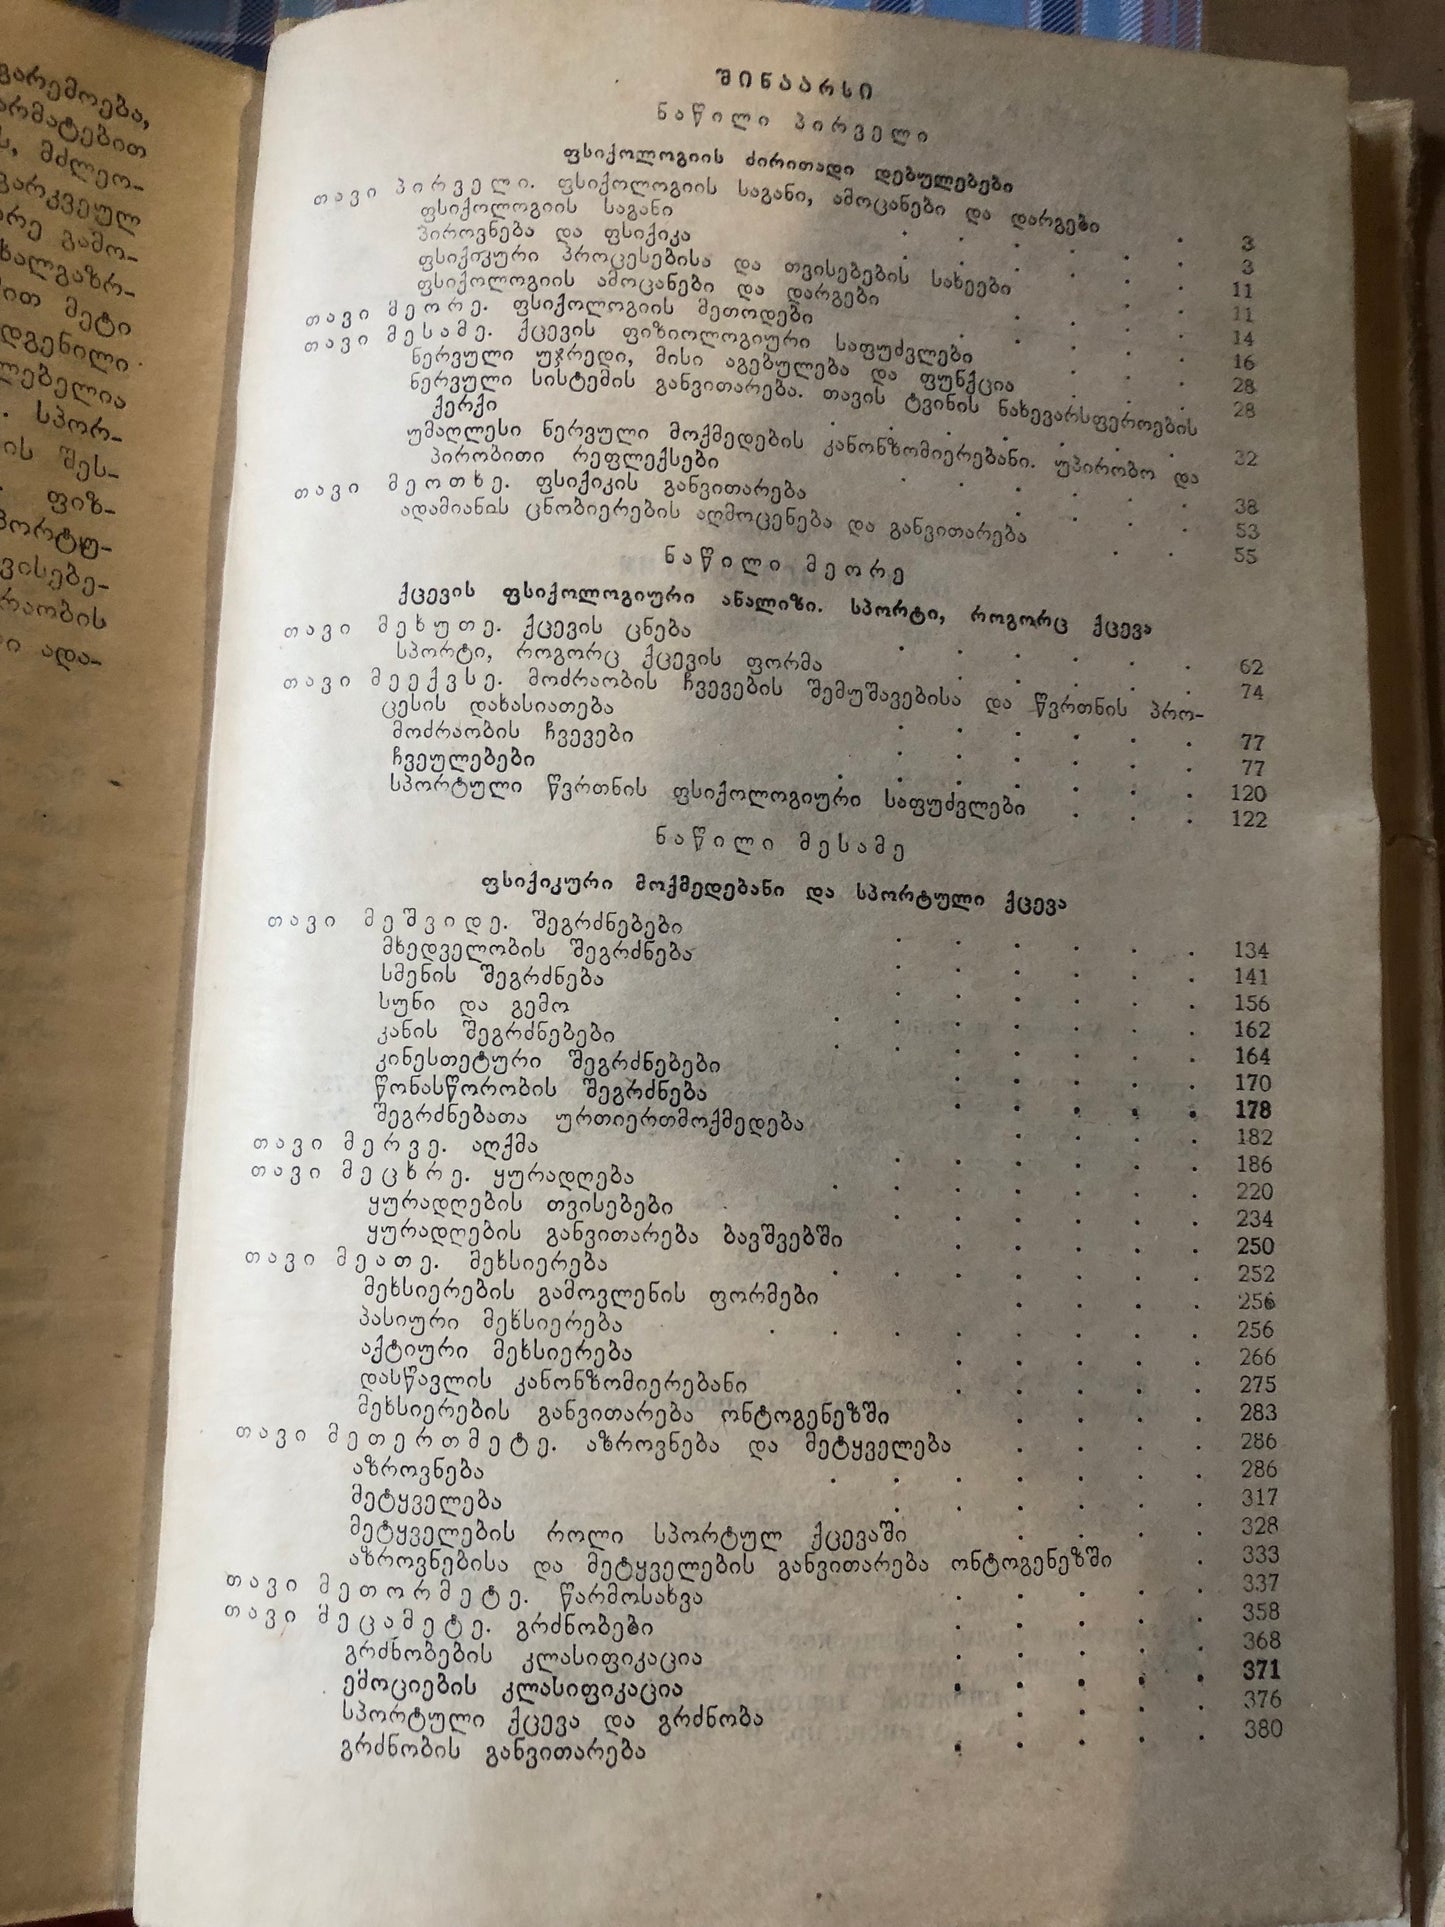 გარემოება,
არმატებით
ს, მძლეო-
გარკვეულ
რე გამო-
ხალგაზრ-
ით მეტი
დგენილი
ლებელია
. სპორ-
ის შეს-
ფიზ-
პორტუ-
ვისებე-
რაობის
ი ადა-
შინაარსი
ნაწილი პირველი
ფსიქოლოგიის ძირითადი დებულებები
თავი პირველი. ფსიქოლოგიის საგანი, ამოცანები და დარგები . 3
ფსიქოლოგიის საგანი . . . . . 3
პიროვნება და ფსიქიკა . . . . . 11
ფსიქიკური პროცესებისა და თვისებების სახეები . . 11
ფსიქოლოგიის ამოცანები და დარგები . . . 14
თავი მეორე. ფსიქოლოგიის მეთოდები . . . . 16
თავი მესამე. ქცევის ფიზიოლოგიური საფუძვლები . . . 28
ნერვული უჯრედი, მისი აგებულება და ფუნქცია . . . 28
ნერვული სისტემის განვითარება. თავის ტვინის ნახევარსფეროების
ქერქი . . . . . . . 32
უმაღლესი ნერვული მოქმედების კანონზომიერებანი. უპირობო და
პირობითი რეფლექსები . . . . . 38
თავი მეოთხე. ფსიქიკის განვითარება . . . . 53
ადამიანის ცნობიერების აღმოცენება და განვითარება . . 55
ნაწილი მეორე
ქცევის ფსიქოლოგიური ანალიზი. სპორტი, როგორც ქცევა
თავი მეხუთე. ქცევის ცნება . . . . . . 62
სპორტი, როგორც ქცევის ფორმა . . . . . 74
თავი მეექვსე. მოძრაობის ჩვევების შემუშავებისა და წვრთნის პრო-
ცესის დახასიათება . . . . . . 77
მოძრაობის ჩვევები . . . . . . 77
ჩვეულებები . . . . . . . 120
სპორტული წვრთნის ფსიქოლოგიური საფუძვლები . . . 122
ნაწილი მესამე
ფსიქიკური მოქმედებანი და სპორტული ქცევა
თავი მეშვიდე. შეგრძნებები . . . . . . 134
მხედველობის შეგრძნება . . . . . . 141
სმენის შეგრძნება . . . . . . 156
სუნი და გემო . . . . . . . 162
კანის შეგრძნებები . . . . . . . 164
კინესთეტური შეგრძნებები . . . . . 170
წონასწორობის შეგრძნება . . . . . 178
შეგრძნებათა ურთიერთმოქმედება . . . . 182
თავი მერვე. აღქმა . . . . . . 186
თავი მეცხრე. ყურადღება . . . . . . . 220
ყურადღების თვისებები . . . . . . 234
ყურადღების განვითარება ბავშვებში . . . . . 250
თავი მეათე. მეხსიერება . . . . . . . 252
მეხსიერების გამოვლენის ფორმები . . . . 256
პასიური მეხსიერება . . . . . . . . 256
აქტიური მეხსიერება . . . . . 266
დასწავლის კანონზომიერებანი . . . . . 275
მეხსიერების განვითარება ონტოგენეზში . . . . 283
თავი მეთერთმეტე. აზროვნება და მეტყველება . . . . 286
აზროვნება . . . . . . . 286
მეტყველება . . . . . . 317
მეტყველების როლი სპორტულ ქცევაში . . . . 328
აზროვნებისა და მეტყველების განვითარება ონტოგენეზში . 333
თავი მეთორმეტე. წარმოსახვა . . . . . 337
თავი მეცამეტე. გრძნობები . . . . . 358
გრძნობების კლასიფიკაცია . . . . . 368
ემოციების კლასიფიკაცია . . . . . 371
სპორტული ქცევა და გრძნობა . . . . 376
გრძნობის განვითარება . . . . . 380